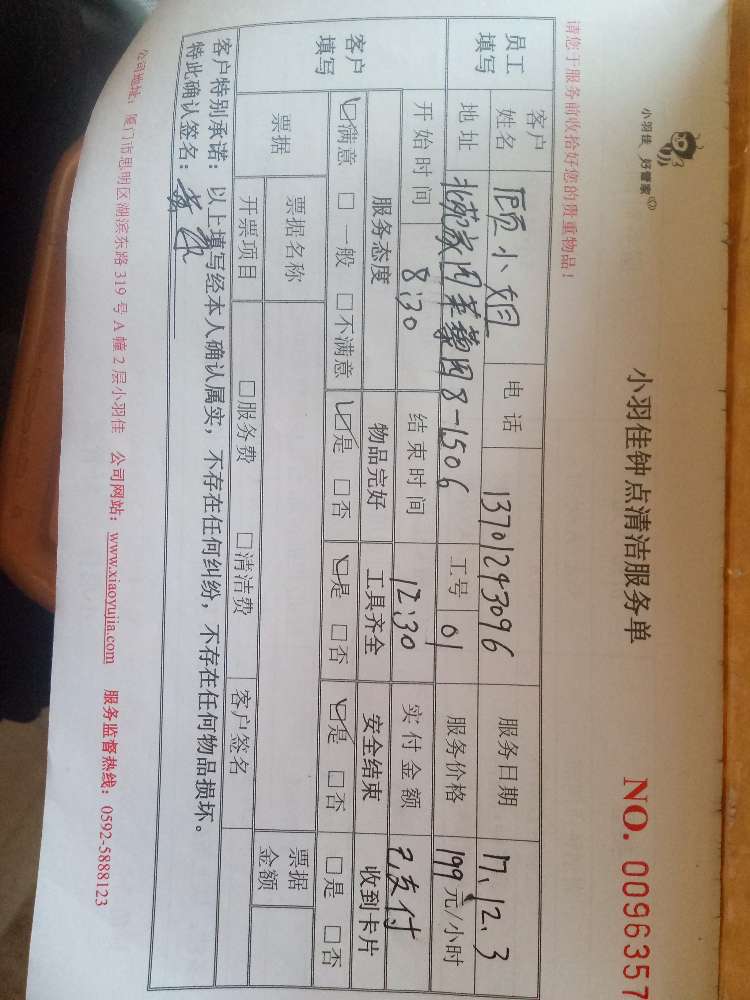 小羽佳 好管家
小羽佳钟点清洁服务单
NO. 0096357
请您于服务前收拾好您的贵重物品!
员工填写 客户姓名 小姐 电话 13701293096 服务日期 17.12.3
地址 北苑家园茉藜园8-1506 工号 01 服务价格 199元/小时
开始时间 8:30 结束时间 12:30 实付金额 已支付
客户填写 服务态度 物品完好 工具齐全 安全结束 收到卡片
☑满意 □一般 □不满意 ☑是 □否 ☑是 □否 ☑是 □否 □是 □否
票据 票据名称 票据金额
开票项目 □服务费 □清洁费 客户签名
客户特别承诺:以上填写经本人确认属实,不存在任何纠纷,不存在任何物品损坏。
特此确认签名:
公司地址:厦门市思明区湖滨东路319号A幢2层小羽佳 公司网站:www.xiaoyujia.com 服务监督热线:0592-5888123